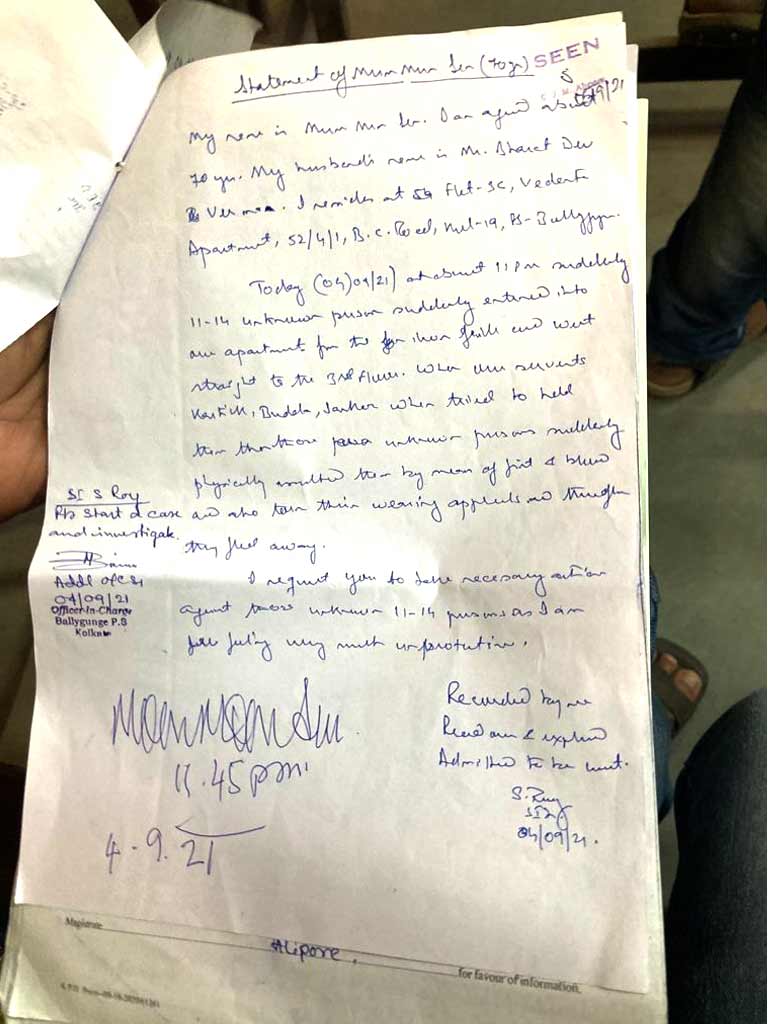 Statement of Mun Mun Sen (70 yr)
SEEN
My name is Mun Mun Sen. I am aged about
70 yr. My husband's name is Mr. Bharat Dev
Verma. I resides at Flat-3C, Vedanta
Apartment, 52/4/1, B.C. Road, Kol-19, PS-Bullygunj.
Today (04/09/21) at about 11 PM suddenly
11-14 unknown person suddenly entered into
our apartment from the iron grill and went
straight to the 3rd floor. When our servents
Kartick, Budda, Sankar when tried to held
them unknown persons suddenly
physically assulted them by mean of fist & blow
and also torn their wearing appearls and
they fled away.
SI S Roy
Pls start a case
and investigate.
Addl O/C
04/09/21
Officer-in-Charge
Ballygunge P.S
Kolkata
I request you to take necessary action
against those unknown 11-14 persons as I am
feeling very much unprotective.
Moon Moon Sen
11.45 pm
4.9.21
Recorded by me
Read over & explained
Admitted to be correct.
S. Roy
SI
04/09/21.
Magistrate
Alipore,
for favour of information.